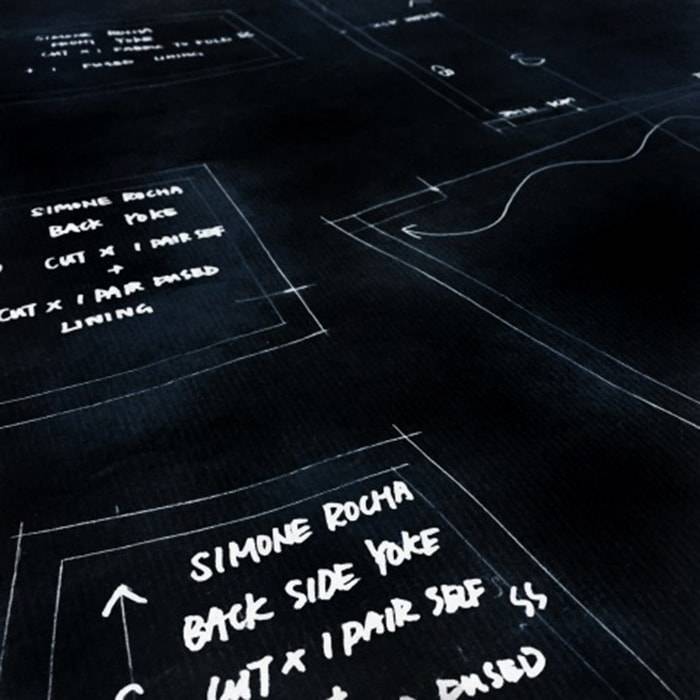 SIMONE ROCHA
FRONT YOKE
CUT X 1 FABRIC TO FOLD
+ 1 FUSED LINING
SIMONE ROCHA
BACK YOKE
CUT X 1 PAIR SELF
+
CUT X 1 PAIR DUSED
LINING
SIMONE ROCHA
BACK SIDE YOKE
CUT X 1 PAIR SELF SS
+
DUSED